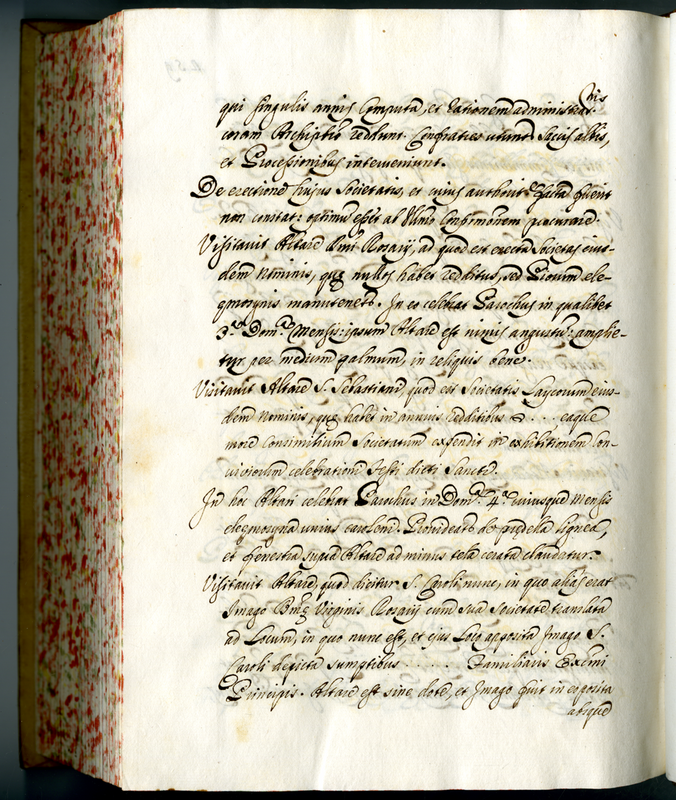 qui singulis annis computa, et rationem administrat.nis
coram Archiptro reddunt. Confratres utunt.r Saccis albis,
et Processionibus interveniunt.
De erectione hujus Societatis, et cujus authorit.e facta fuerit
non constat: optimum esset ab Ill.mo Confirmationem procurare.
Visitavit Altare S.mi Rosarij, ad quod est erecta Societas eius-
dem nominis, quę nullos habet redditus, sed piorum ele-
gmosynis manutenet.r. In eo celebrat Parochus in qualibet
3.a Dom.ca Mensis: ipsum Altare est nimis angustu: amplie-
tur per medium palmum, in reliquis bene.
Visitavit Altare S. Sebastiani, quod est Societatis Laycorum eius-
dem nominis, quę habet in annuis redditibus . . . . eaque
more consimilium Societatum expendit in exhibitionem con-
viviorum celebratione Festi dicti Sancti.
In hoc Altari celebrat Parochus in Dom.ca 4.a cuiusque mensis
elegmosyna unius caroleni. Provideat.r de predella lignea,
et fenestra supra Altare ad minus tela cerata claudatur.
Visitavit Altare, quod dicitur S. Caroli nunc, in quo alias erat
Imago Bmę Virginis Rosarij cum sua Societate, translata
ad Locum, in quo nunc est, et ejus Loco apposita Imago S.
Caroli depicta sumptibus . . . . . . Familiaris Excmi
Principis. Altare est sine dote, et Imago fuit in exposita
absque